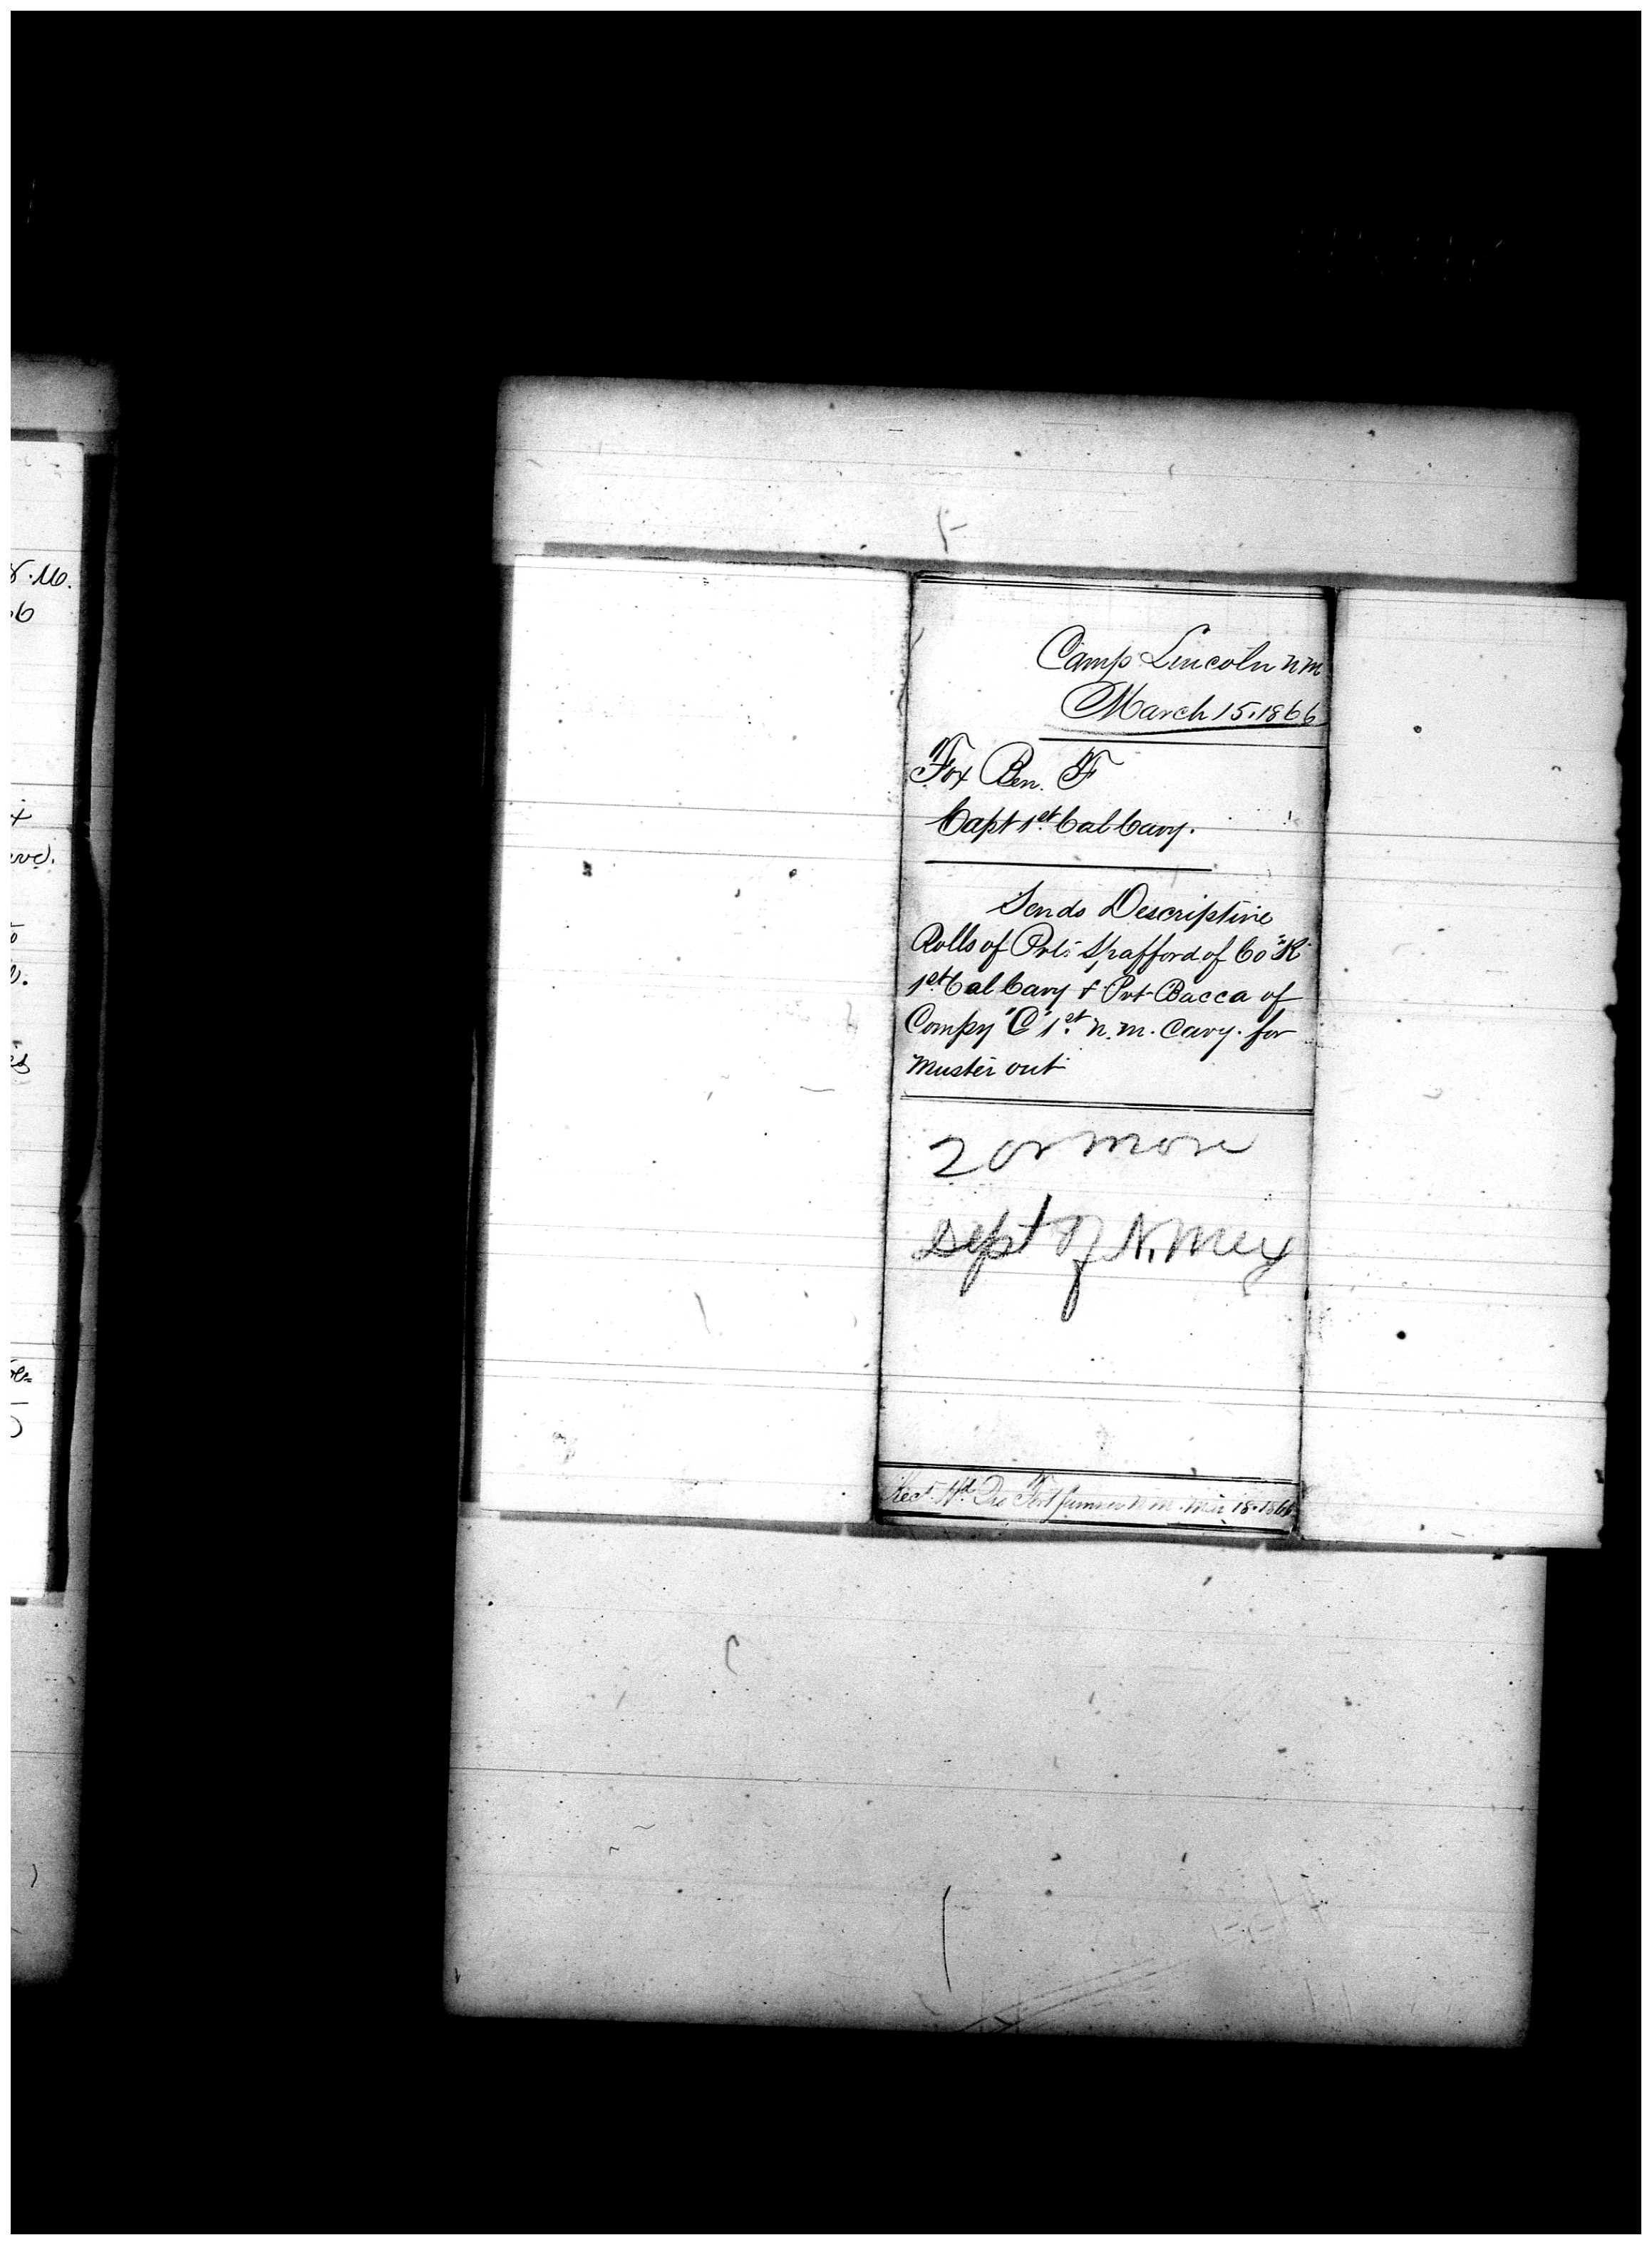 Camp Lincoln N M
March 15. 1866
Fox Ben. F
Capt 1st Cal Cavy.
Sends Descriptive
Rolls of Pvts Spafford of Co "K"
1st Cal Cavy & Pvt Bacca of
Compy "C" 1st N. M. Cavy. for
muster out
2 or more
Dept of N. Mex
Recd Hd. Qrs Fort Sumner N M. Mar 18. 1866